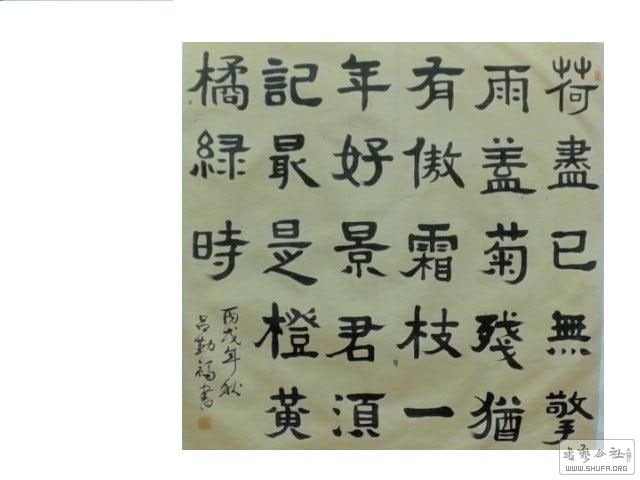 荷盡已無擎
雨盖菊殘猶
有傲霜枝一
年好景君須
記最是橙黄
橘緑時
丙戌年秋
吕勤福書
书艺公社
WWW.SHUFA.ORG